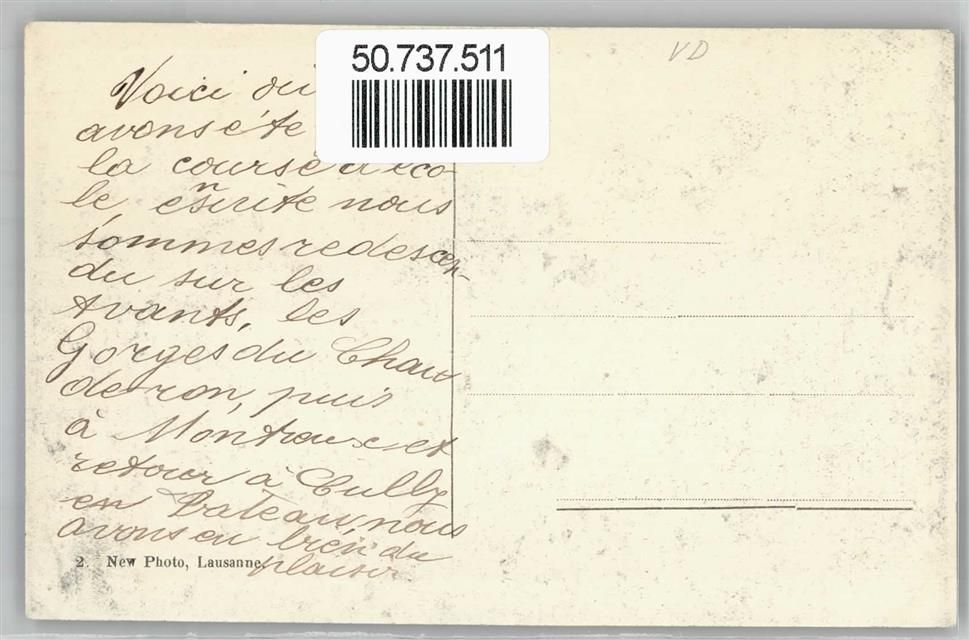 50.737.511
VD
Voici où
avons été
la course d'éco-
le ensuite nous
sommes redescen-
du sur les
Avants, les
Gorges du Chau
deron, puis
à Montreux et
retour à Cully
en Bateau, nous
avons eu bien du
plaisir
2. New Photo, Lausanne.